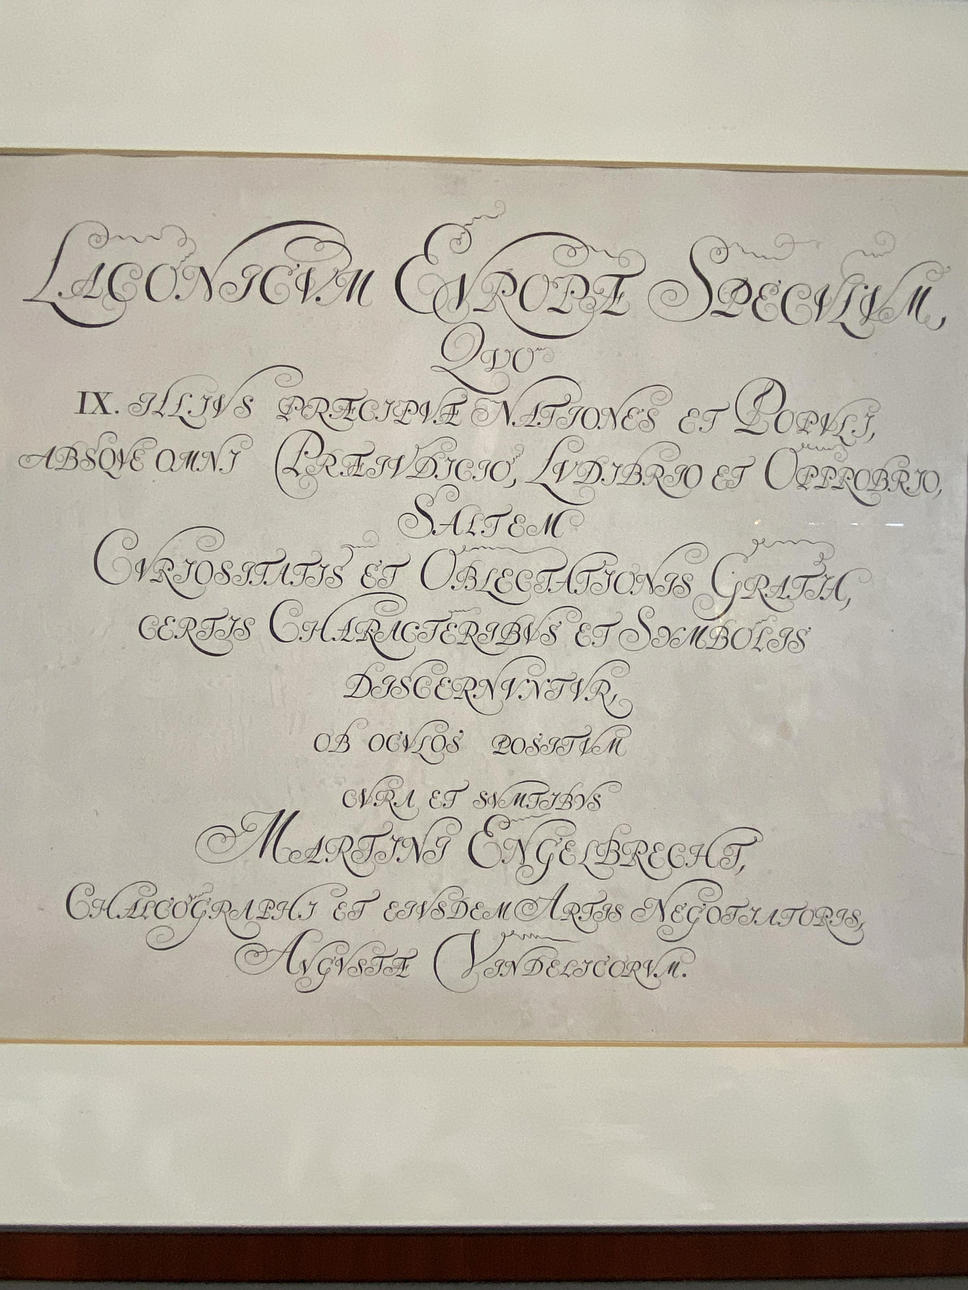 LACONICVM EVROPÆ SPECVLVM,
QVO
IX. ILLIVS PRÆCIPVÆ NATIONES ET POPVLI,
ABSQVE OMNI PRÆIVDICIO, LVDIBRIO ET OPPROBRIO,
SALTEM
CVRIOSITATIS ET OBLECTATIONIS GRATIA,
CERTIS CHARACTERIBVS ET SYMBOLIS
DISCERNVNTVR,
OB OCVLOS POSITVM
CVRA ET SVMTIBVS
MARTINI ENGELBRECHT,
CHALCOGRAPHI ET EIVSDEM ARTIS NEGOTIATORIS,
AVGVSTÆ VINDELICORVM.